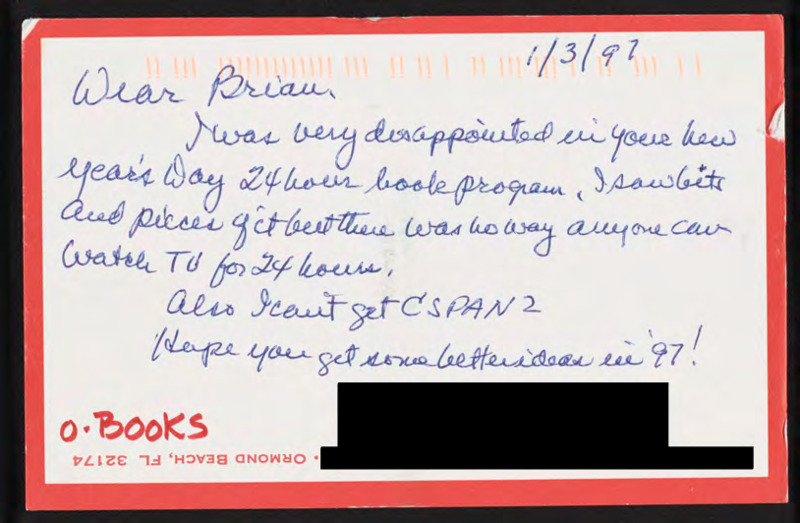 1/3/97
Dear Brian,
I was very disappointed in your new
Year's Day 24 hour book program, I saw bits
and pieces of it but there was no way anyone can
watch TV for 24 hours.
Also I can't get CSPAN 2
Hope you get some better ideas in '97!
O. BOOKS
• ORMOND BEACH, FL 32174